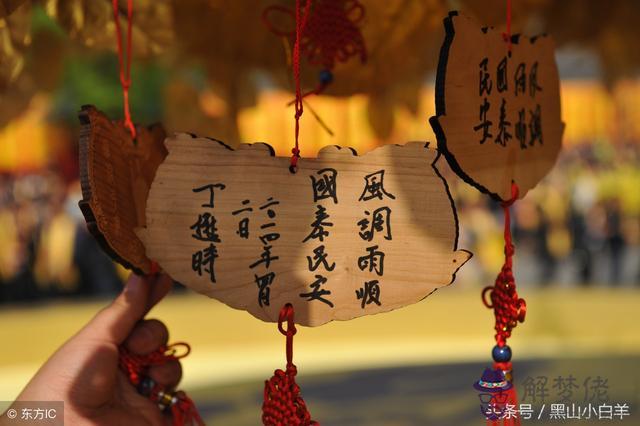 風調雨順
國泰民安
二〇一四年
二日
丁 時
風調
雨順
國泰
民安
解梦佬
© 东方IC
头条号 / 黑山小白羊